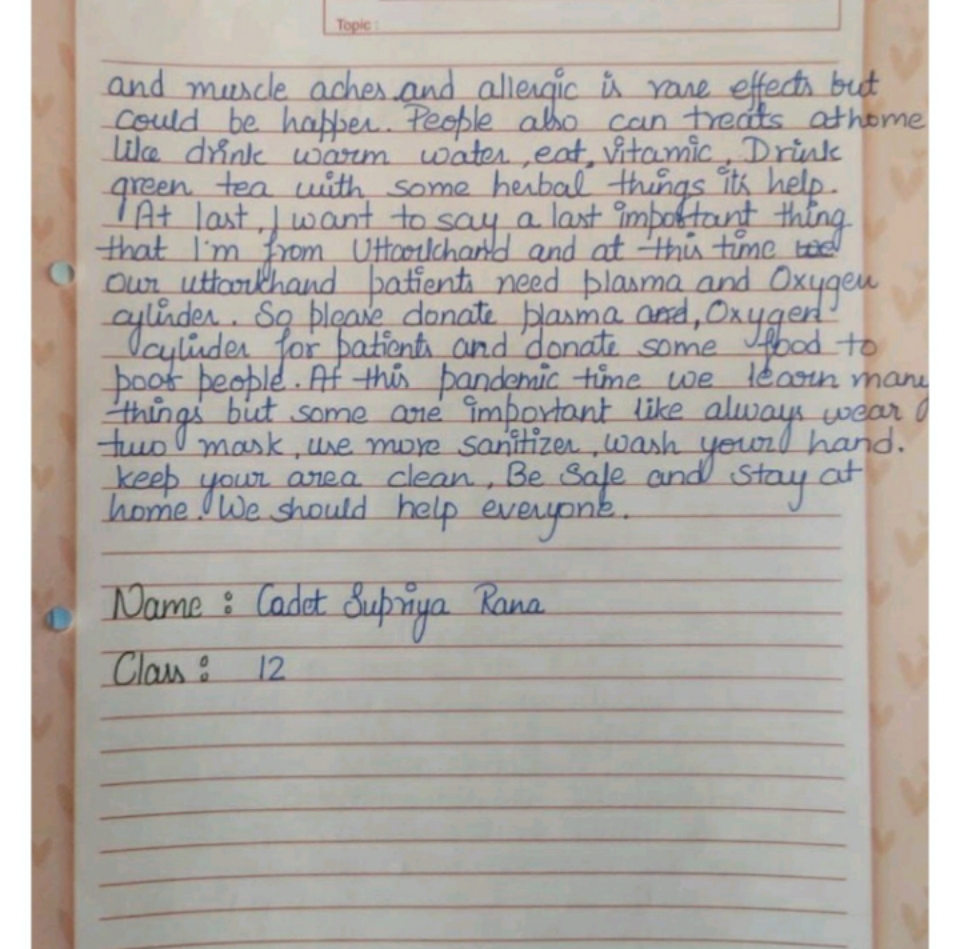 Topic :
and muscle aches and allergic is rare effects but
could be happer. People also can treats athome
like drink warm water, eat, vitamic, Drink
green tea with some herbal things its help.
At last, I want to say a last important thing
that I'm from Uttarkhand and at this time
our uttarkhand patients need plasma and Oxygen
cylinder. So please donate plasma and, Oxygen
cylinder for patients and donate some food to
poor people. At this pandemic time we learn many
things but some are important like always wear
two mask, use more sanitizer, wash your hand.
keep your area clean, Be Safe and stay at
home. We should help everyone.
Name : Cadet Supriya Rana
Class : 12